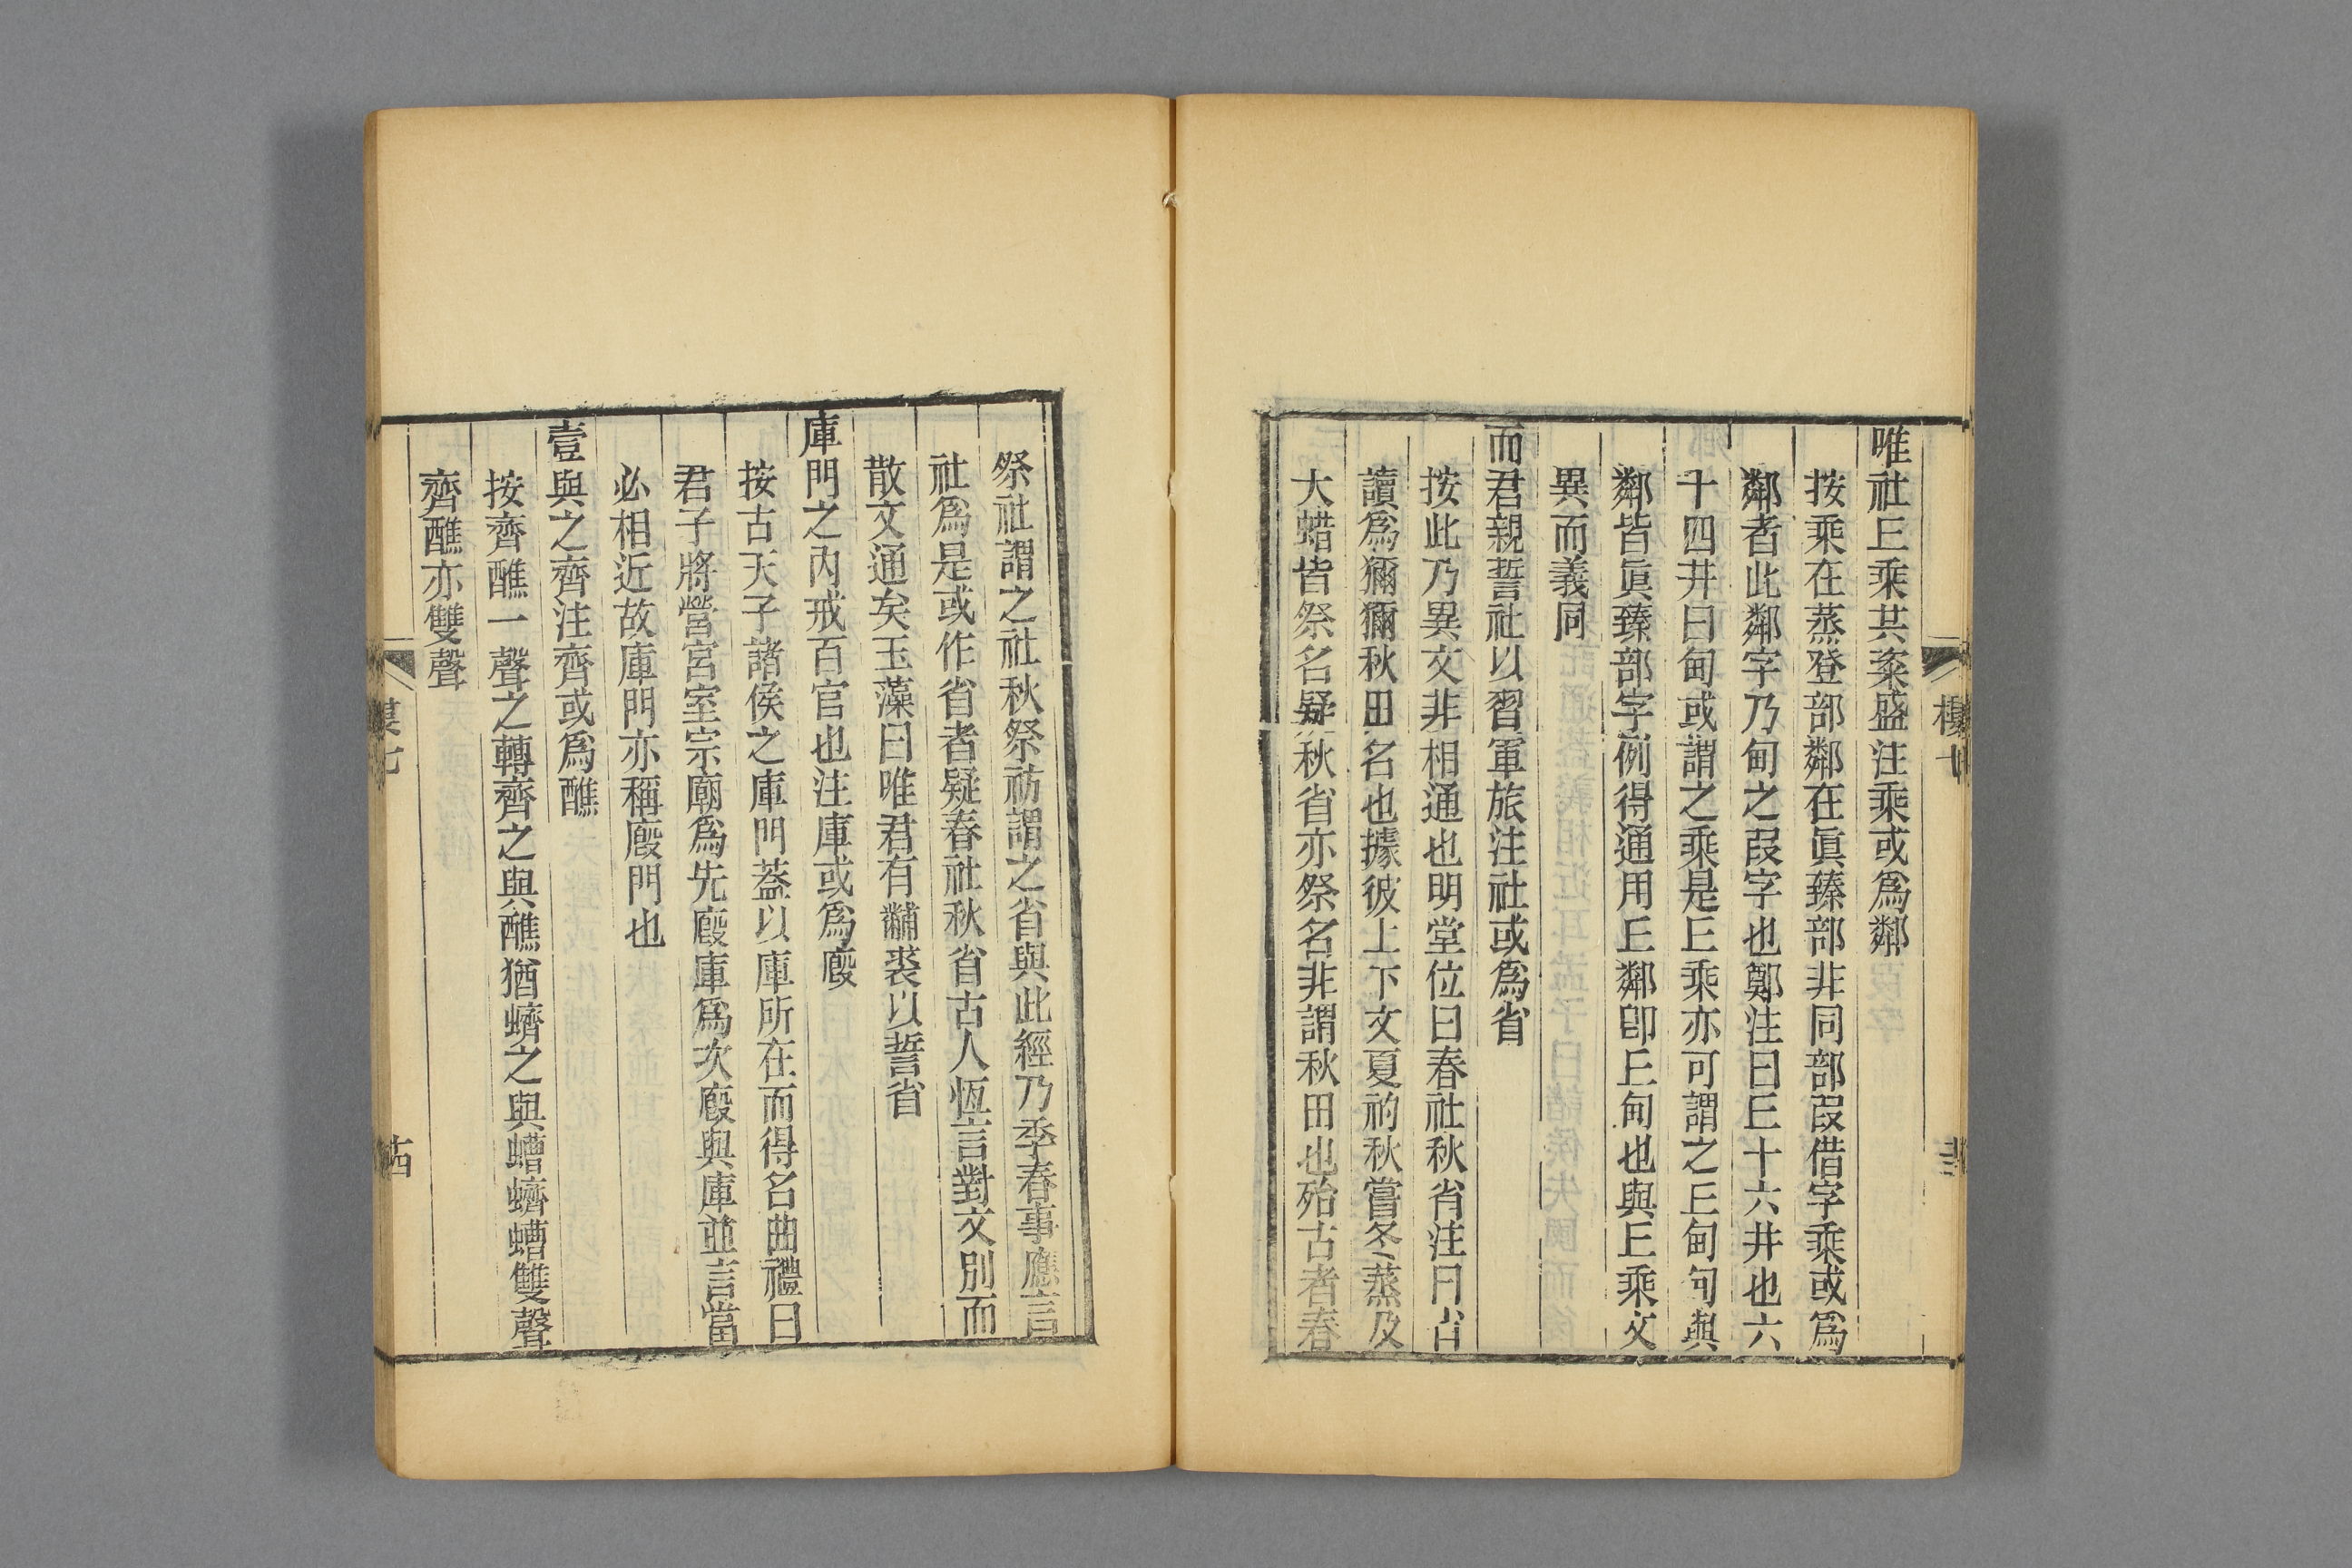 唯社𠀉乘共粢盛注乘或爲鄰
按乘在蒸登部鄰在眞臻部部非同部叚借字乘或爲
鄰者此鄰字乃甸之叚字也鄭注曰𠀉十六井也六
十四井曰甸或謂之乘是𠀉乘亦可謂之𠀉甸甸與
鄰皆眞臻部字例得通用𠀉鄰卽𠀉甸也與𠀉乘文
異而義同
而君親誓社以習軍旅注社或爲省
按此乃異文非相通也明堂位曰春社秋省注曰省
讀爲獮獮秋田名也據彼上下文夏礿秋嘗冬蒸及
大蜡皆祭名疑秋省亦祭名非謂秋田也殆古者春
祭社謂之社秋祭祊謂之省與此經乃季春事應言
社爲是或作省者疑春社秋省古人恆言對文別而
散文通矣玉藻曰唯君有黼裘以誓省
庫門之內戒百官也注庫或爲廏
按古天子諸侯之庫門葢以庫所在而得名曲禮曰
君子將營宮室宗廟爲先廏庫爲次廏與庫並言當
必相近故庫門亦稱廏門也
壹與之齊注齊或爲醮
按齊醮一聲之轉齊之與醮猶蠐之與螬蠐螬雙聲
齊醮亦雙聲